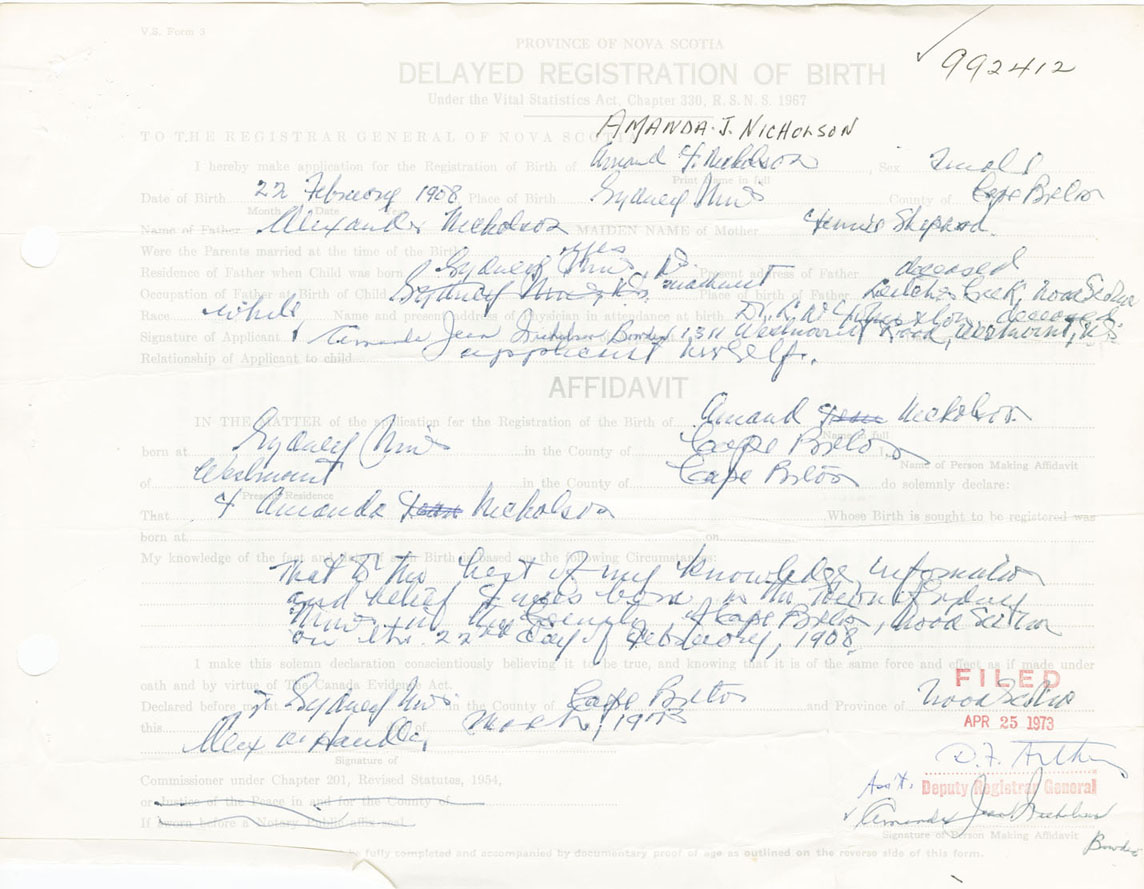 V.S. Form 5
992412
PROVINCE OF NOVA SCOTIA
DELAYED REGISTRATION OF BIRTH
Under the Vital Statistics Act, Chapter 330, R. S. N. S. 1967
AMANDA. J. NICHOLSON
TO THE REGISTRAR GENERAL OF NOVA SCOTIA
I hereby make application for the Registration of Birth of Amand J. Nicholson, Sex
Print Name in full
Date of Birth 22 February 1908 Place of Birth Sydney County of Cape Breton
Month Date
Name of Father Alexander Nicholson MAIDEN NAME of Mother
Were the Parents married at the time of the Birth yes
Residence of Father when Child was born Sydney Present address of Father deceased
Occupation of Father at Birth of Child Sydney Place of birth of Father Leitches Creek, Nova Scotia
Race white Name and present address of Physician in attendance at birth Dr. deceased
Signature of Applicant Amanda Jean Nicholson Bowden Westmount Road, Westmount, N.S.
Relationship of Applicant to child applicant
AFFIDAVIT
IN THE MATTER of the application for the Registration of the Birth of Amand Jean Nicholson
Name in full
born at Sydney in the County of Cape Breton
Name of Person Making Affidavit
of Westmount in the County of Cape Breton do solemnly declare:
Present Residence
That I Amanda Jean Nicholson Whose Birth is sought to be registered was
born at on
My knowledge of the fact and date of such Birth is based on the following Circumstances:
That to the best of my knowledge, information
and belief I was born in the Town of Sydney
Mines in the County of Cape Breton, Nova Scotia
on the 22nd day of February, 1908.
I make this solemn declaration conscientiously believing it to be true, and knowing that it is of the same force and effect as if made under
oath and by virtue of The Canada Evidence Act.
FILED
Declared before me at Sydney in the County of Cape Breton and Province of Nova Scotia
this of March, 1973
APR 25 1973
Signature of
D. F.
Commissioner under Chapter 201, Revised Statutes, 1954,
Ass't. Deputy Registrar General
or Justice of the Peace in and for the County of
Amanda Jean Nicholson
If sworn before a Notary Public affix seal
Signature of Person Making Affidavit
Bowden
be fully completed and accompanied by documentary proof of age as outlined on the reverse side of this form.